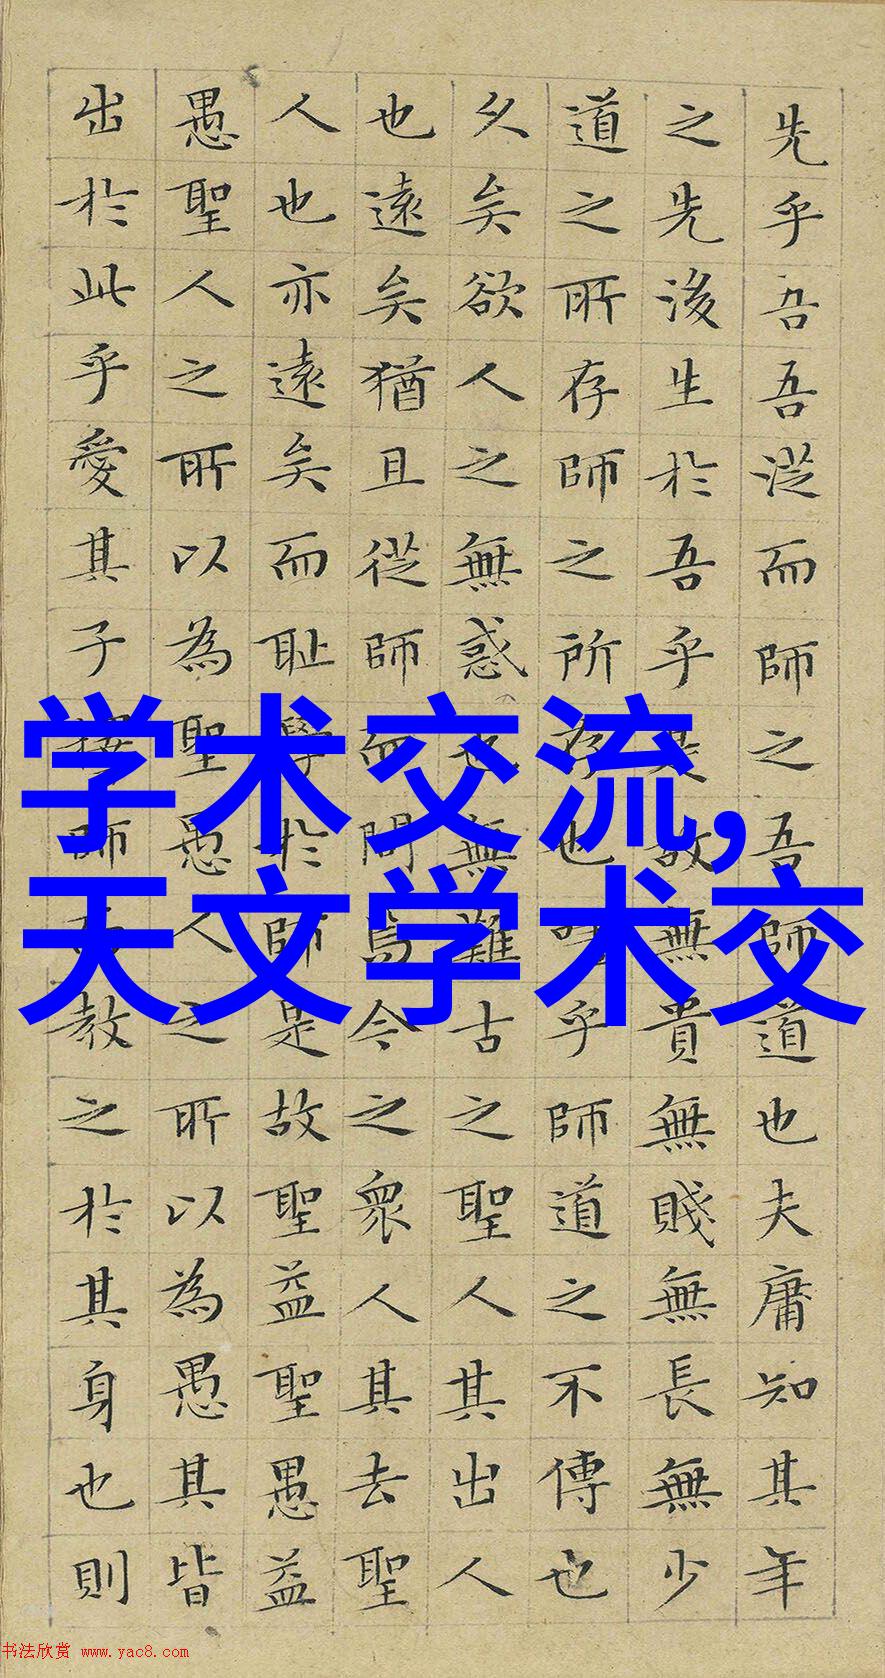 先乎吾吾從而師之吾師道也夫庸知其年
之先後生於吾乎是故無貴無賤無長無少
道之所存師之所存也嗟乎師道之不傳也
久矣欲人之無惑也無難古之聖人其出人
也遠矣猶且從師而問焉今之眾人其去聖
人也亦遠矣而耻學於師是故聖益聖愚益
愚聖人之所以為聖愚人之所以為愚其皆
出於此乎愛其子擇師而教之於其身也則
学术交流,
天文学术交
书法欣赏 www.yac8.com